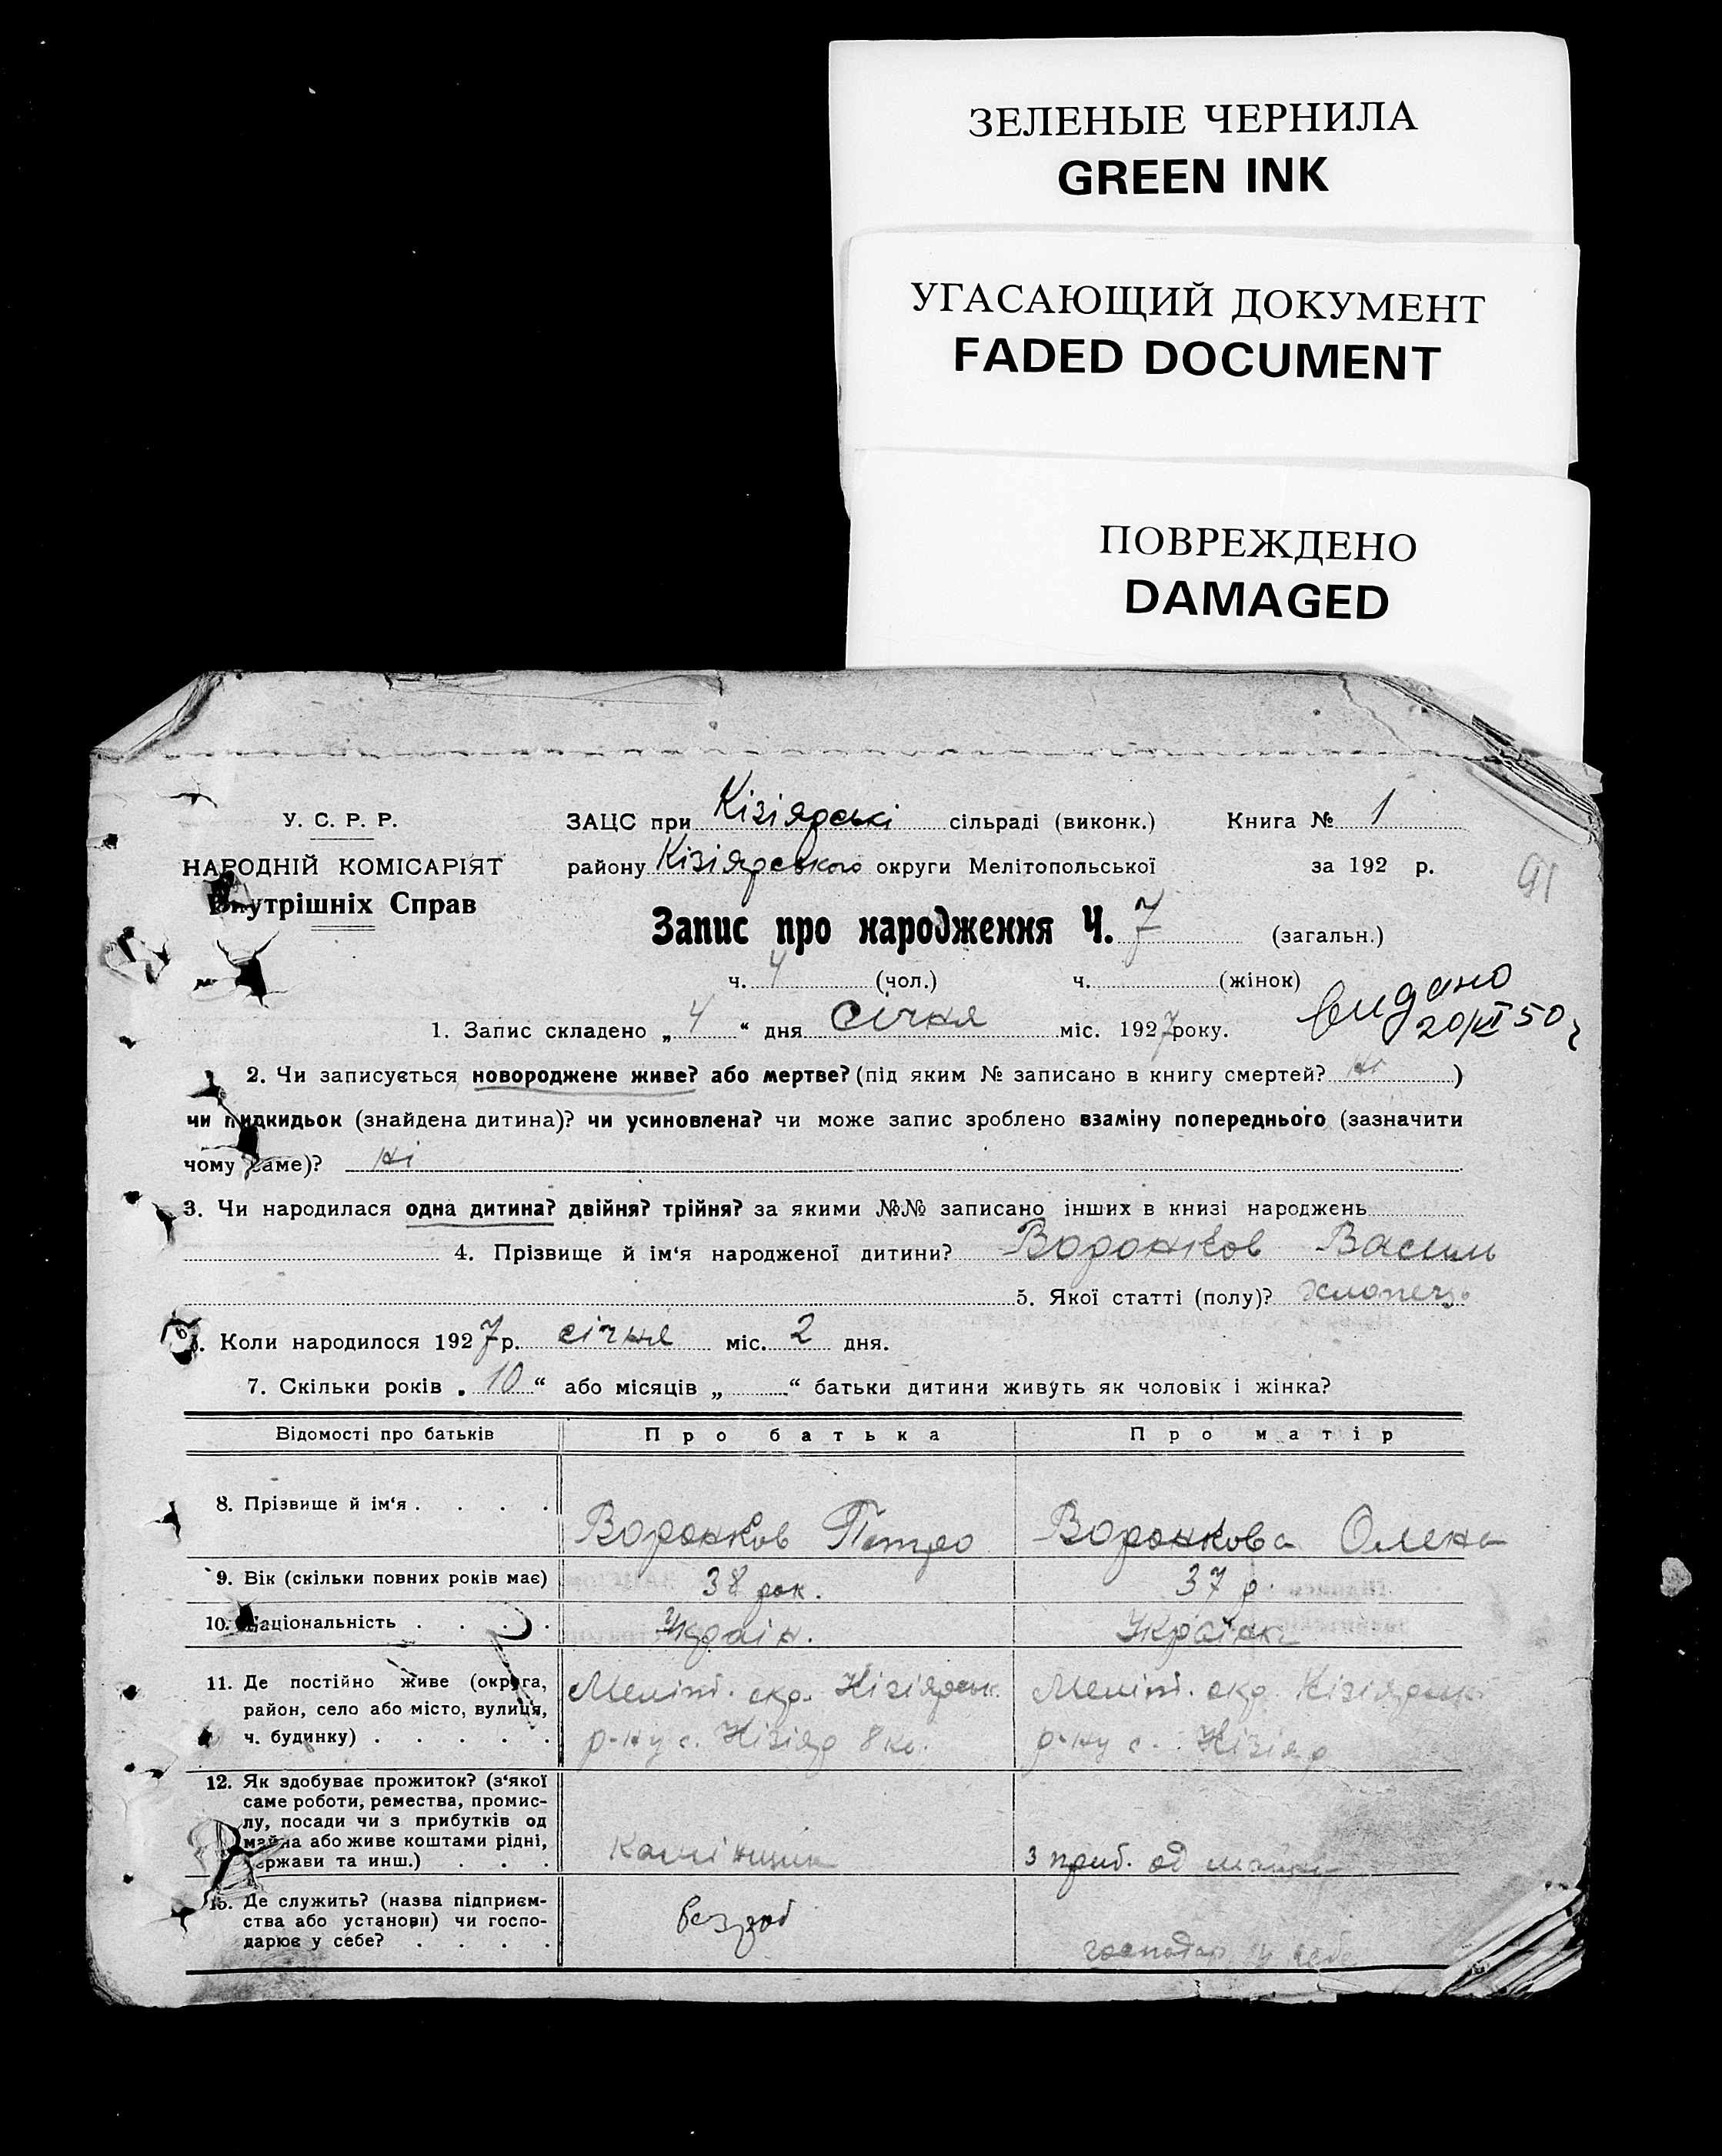 ЗЕЛЕНЫЕ ЧЕРНИЛА
GREEN INK
УГАСАЮЩИЙ ДОКУМЕНТ
FADED DOCUMENT
ПОВРЕЖДЕНО
DAMAGED
У. С. Р. Р.
НАРОДНІЙ КОМІСАРІЯТ
Внутрішніх Справ
ЗАЦС при Кізіярські сільраді (виконк.) Книга № 1
району Кізіярського округи Мелітопольської за 192 р.
91
Запис про народження Ч. 7 (загальн.)
ч. 4 (чол.) ч. (жінок)
видано
20/XI 50 г
1. Запис складено „ 4 “ дня січня міс. 1927 року.
2. Чи записується новороджене живе? або мертве? (під яким № записано в книгу смертей? ні )
чи підкидьок (знайдена дитина)? чи усиновлена? чи може запис зроблено взаміну попереднього (зазначити
чому саме)? ні
3. Чи народилася одна дитина? двійня? трійня? за якими №№ записано інших в книзі народжень
4. Прізвище й ім‘я народженої дитини? Воронков Василь
5. Якої статті (полу)? хлопець
6. Коли народилося 1927 р. січня міс. 2 дня.
7. Скільки років „ 10 “ або місяців „ “ батьки дитини живуть як чоловік і жінка?
Відомості про батьків Про батька Про матір
8. Прізвище й ім‘я . . . . Воронков Петро Воронкова Олена
9. Вік (скільки повних років має) 38 рок. 37 р.
10. Національність . . . . Україн. Українка
11. Де постійно живе (округа, Меліт. окр. Кізіярськ. Меліт. окр. Кізіярськ.
район, село або місто, вулиця,
ч. будинку) . . . . . р-ну с. Кізіяр р-ну с. Кізіяр
12. Як здобуває прожиток? (з‘якої
саме роботи, ремества, промис-
лу, посади чи з прибутків од
майна або живе коштами рідні,
держави та инш.) . . . Камінщик з приб. од
13. Де служить? (назва підприєм-
ства або установи) чи госпо-
дарює у себе? . . . . безроб господар. у себе